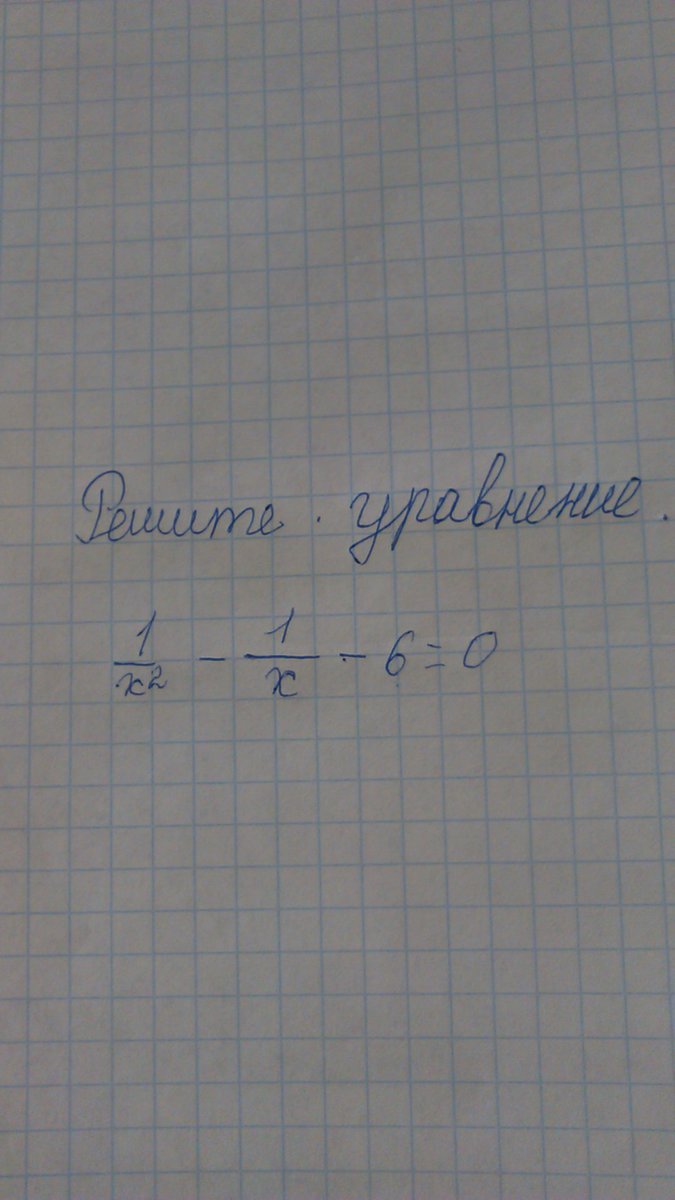 Решите уравнение.
1/x² - 1/x - 6 = 0